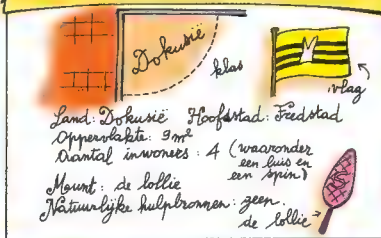 Dokusië
klas
vlag
Land: Dokusië Hoofdstad: Fredstad
Oppervlakte: 9 m²
Aantal inwoners: 4 (waaronder
een luis en
een spin)
Munt: de lollie
Natuurlijke hulpbronnen: geen.
de lollie